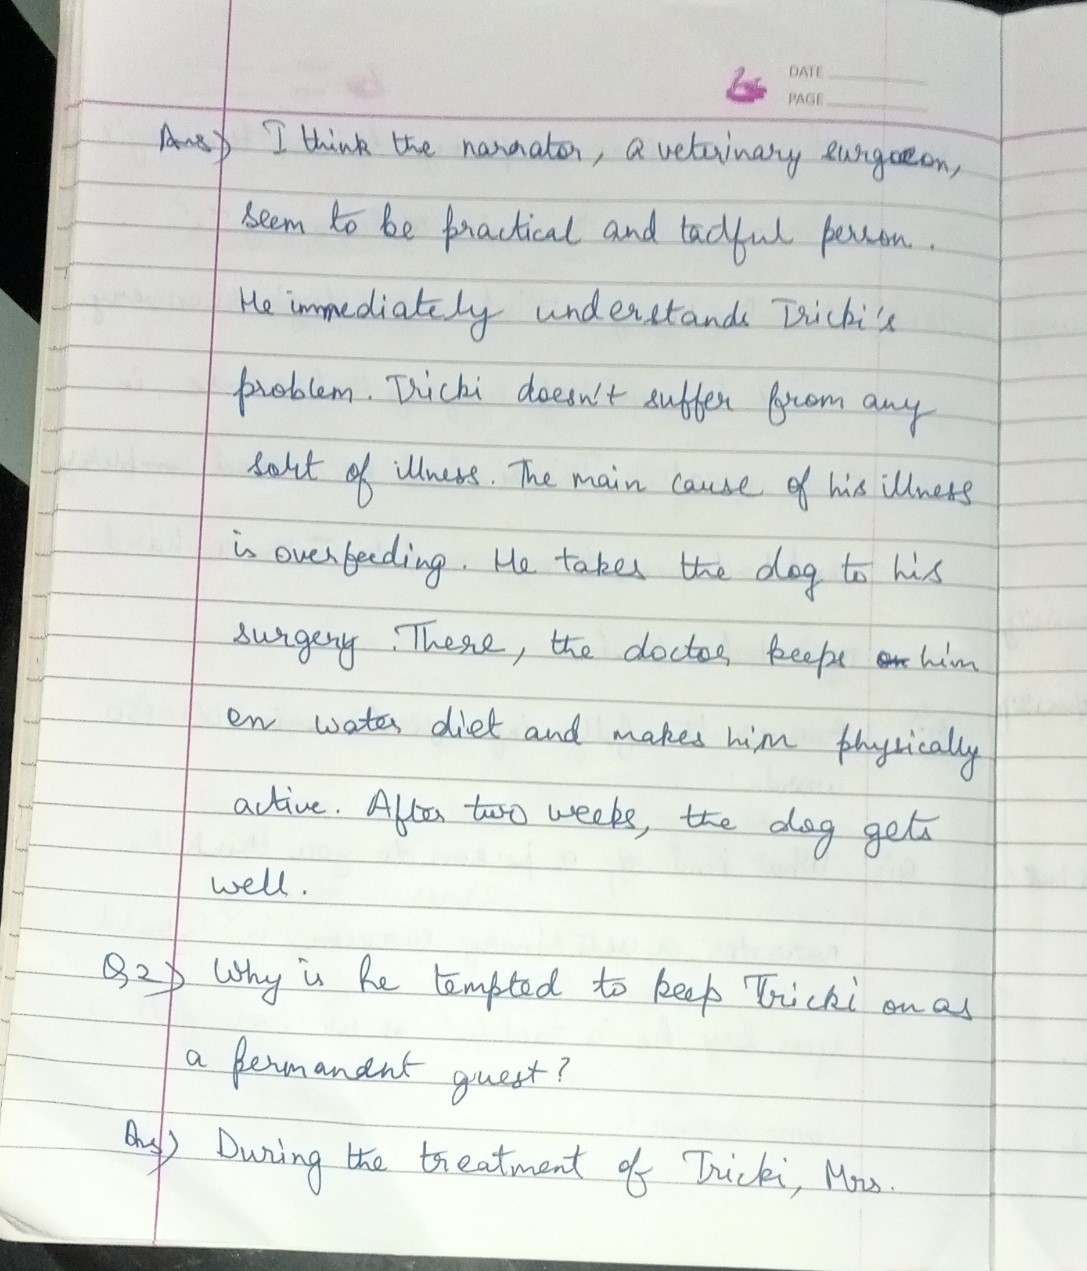 DATE
PAGE
Ans) I think the narrator, a veterinary surgeon,
seem to be practical and tadful person.
He immediately understands Tricki's
problem. Tricki doesn't suffer from any
sort of illness. The main cause of his illness
is overfeeding. He takes the dog to his
surgery. There, the doctor keeps him
on water diet and makes him physically
active. After two weeks, the dog gets
well.
Q2) Why is he tempted to keep Tricki on as
a permandnt guest?
Ans) During the treatment of Tricki, Mrs.